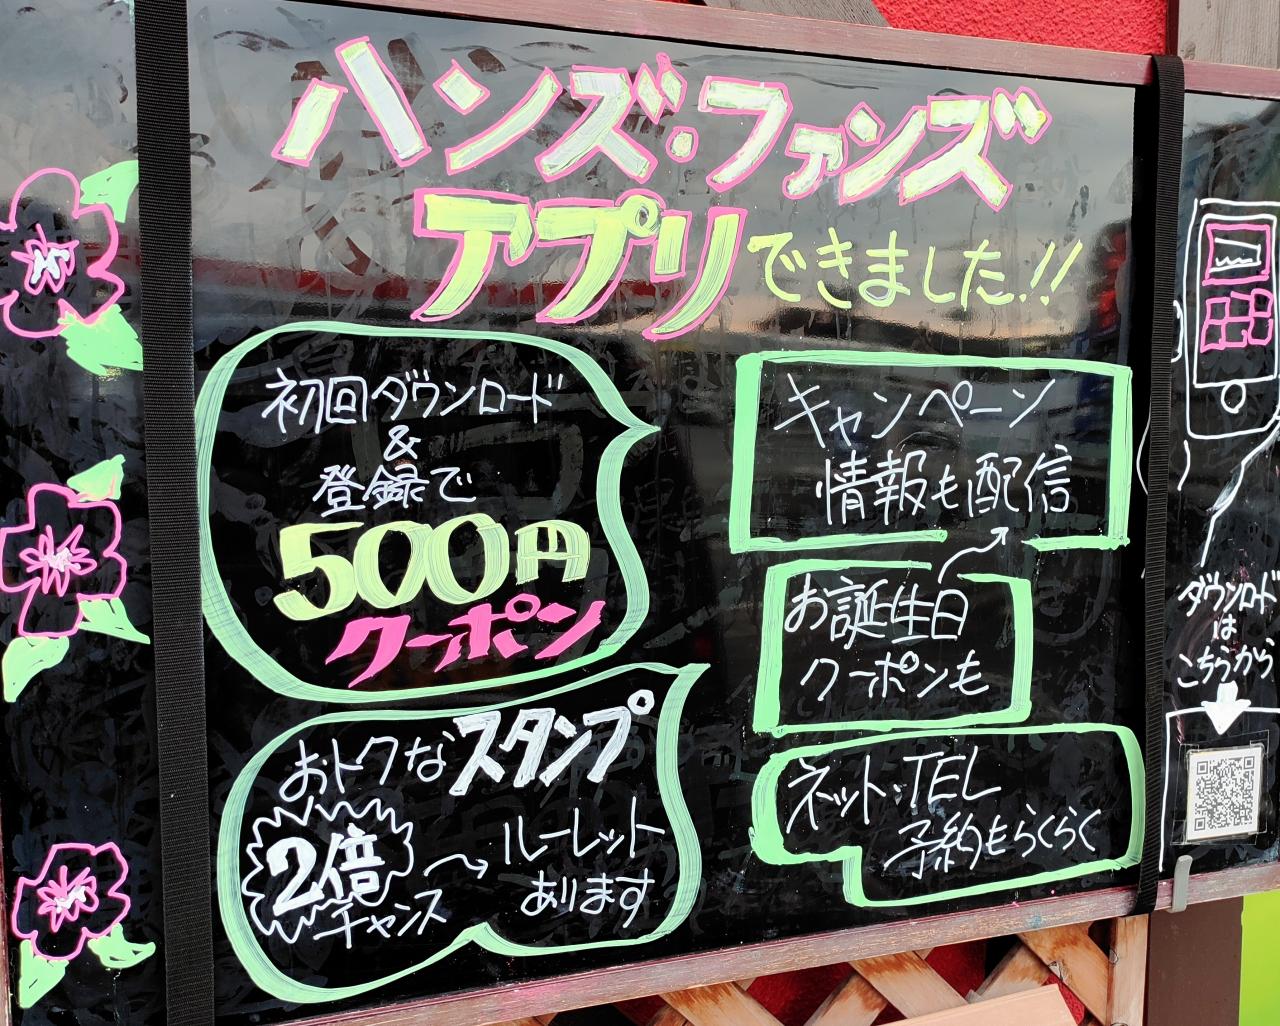 ハンズ・ファンズ
アプリできました!!
初回ダウンロード
&
登録で
500円
クーポン
おトクなスタンプ
2倍
チャンス
ルーレット
あります
キャンペーン
情報も配信
お誕生日
クーポンも
ネット・TEL
予約もらくらく
ダウンロード
は
こちらから